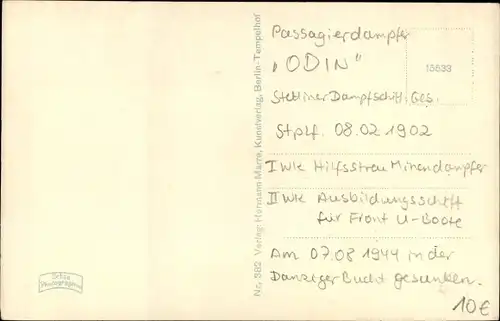 Passagierdampfer
„ODIN“
15533
Stettiner Dampfschiff. Ges.
Stplf. 08.02 1902
I WK Hilfsstreu Minendampfer
II WK Ausbildungsschiff
für Front U-Boote
Am 07.08 1944 in der
Danziger Bucht gesunken.
10€
Nr. 382 Verlag: Hermann Marre, Kunstverlag, Berlin-Tempelhof
Photographie